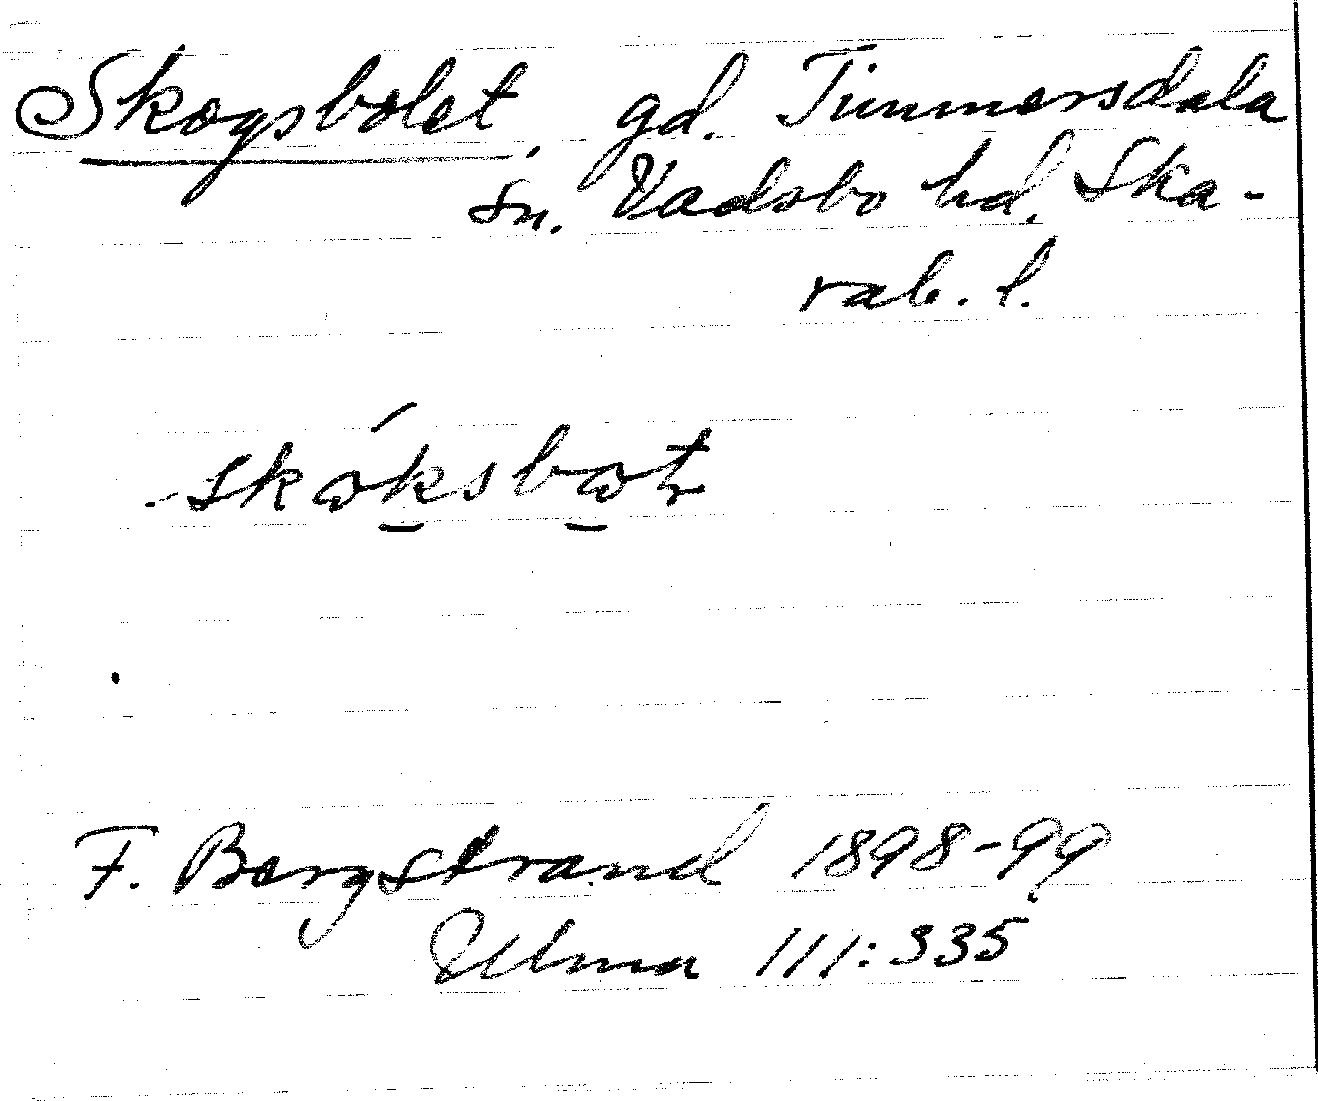 Skogsbolet, gd. Timmersdala
sn. Vadsbo hd. Ska-
rab. l.
F. Bergstrand 1898-99
Ulma 111:335